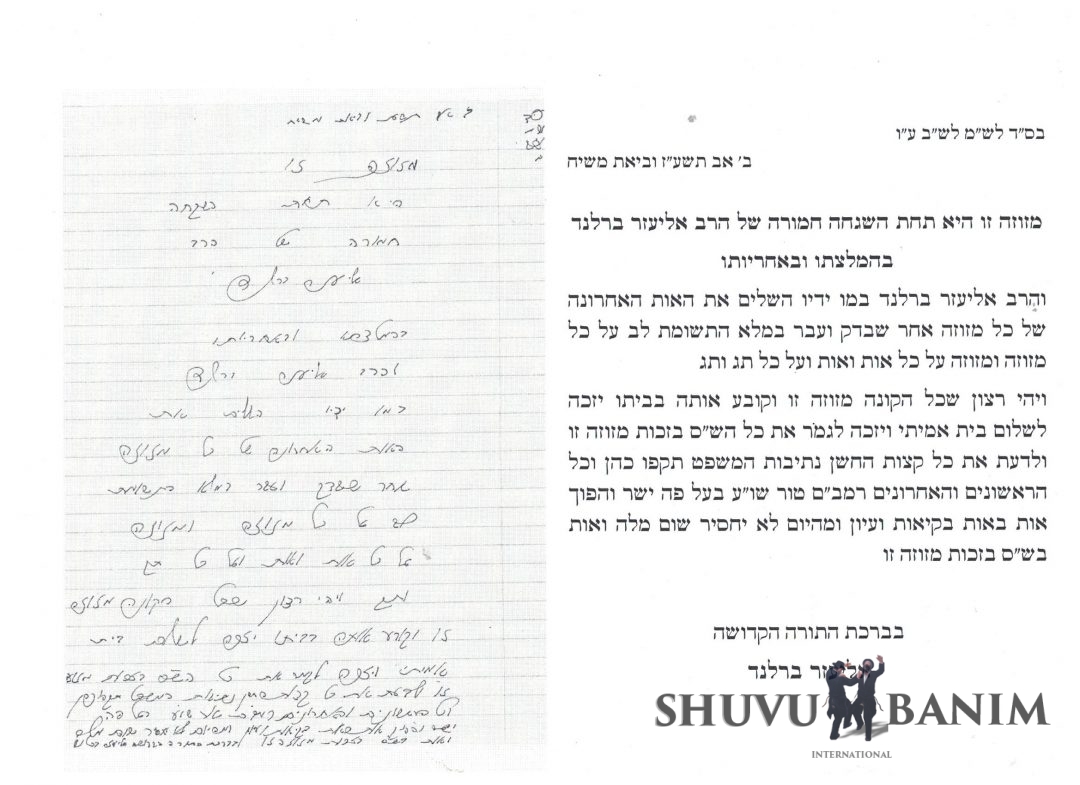 בס"ד לש"מ לש"ב ע"ו
ב' אב תשע"ז וביאת משיח
מזוזה זו היא תחת השגחה חמורה של הרב אליעזר ברלנד
בהמלצתו ובאחריותו
והרב אליעזר ברלנד במו ידיו השלים את האות האחרונה
של כל מזוזה אחר שבדק ועבר במלא התשומת לב על כל
מזוזה ומזוזה על כל אות ואות ועל כל תג ותג
ויהי רצון שכל הקונה מזוזה זו וקובע אותה בביתו יזכה
לשלום בית אמיתי ויזכה לגמֹר את כל הש"ס בזכות מזוזה זו
ולדעת את כל קצות החשן נתיבות המשפט תקפו כהן וכל
הראשונים והאחרונים רמב"ם טור שו"ע בעל פה ישר והפוך
אות באות בקיאות ועיון ומהיום לא יחסיר שום מלה ואות
בש"ס בזכות מזוזה זו
בברכת התורה הקדושה
ברלנד
SHUVU BANIM
INTERNATIONAL
מזוזה זו
היא תחת השגחה
חמורה של הרב
אליעזר ברלנד
בהמלצתו ובאחריותו
והרב אליעזר ברלנד
במו ידיו השלים את
האות האחרונה של כל מזוזה
אחר שבדק ועבר במלא התשומת
לב על כל מזוזה ומזוזה
על כל אות ואות ועל כל תג
ותג ויהי רצון שכל הקונה מזוזה
זו וקובע אותה בביתו יזכה לשלום בית